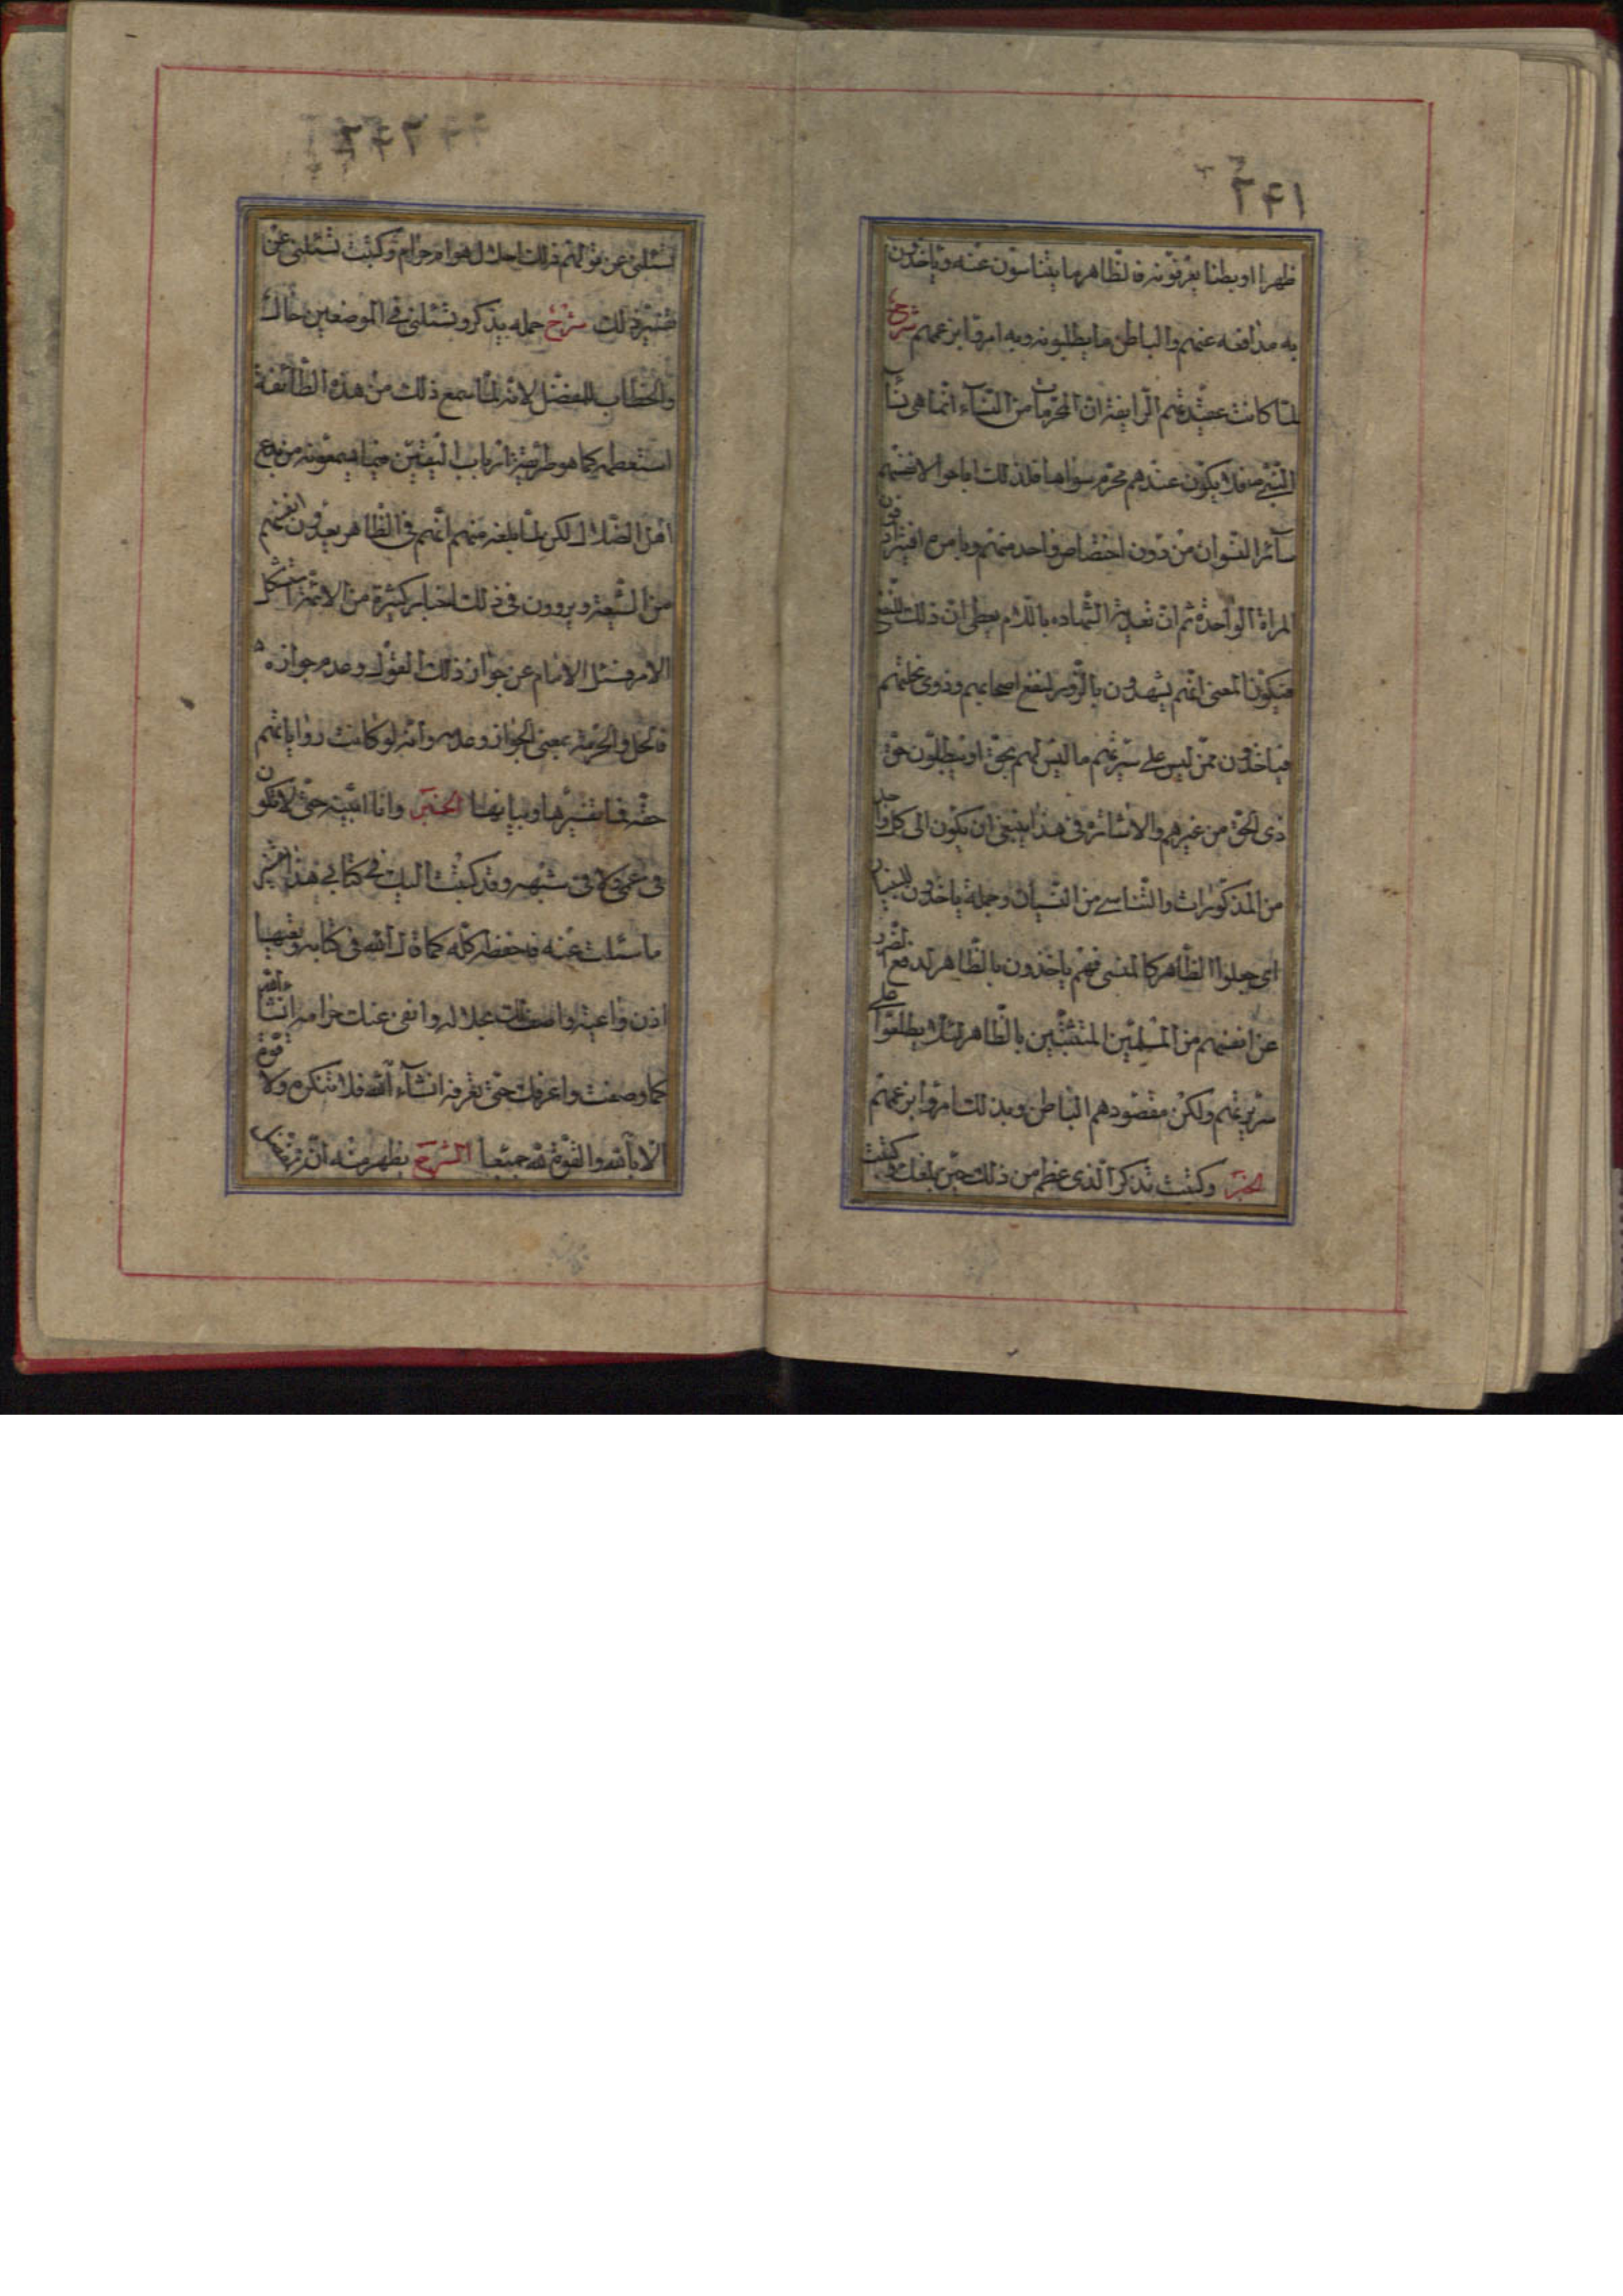 ٢٤١
ظهرا او بطنا يعرفونه فالظاهر ما يتناسون عنه وياخذون
به مدافعه عنهم والباطن ما يطلبونه وبه امروا بزعمهم شرح
لما كانت عقيدتهم الزايفة ان المحرمات من النساء انما هي نسآء
النبي ص فلا يكون عندهم محرم سواها فلذلك اباحوا لانفسهم
سآئر النسوان من دون اختصاص واحد منهم وبامره افتراد
المراة الواحدة ثم ان تعدية الشهاده باللام يعطى ان ذلك للنفع
فيكون المعنى انهم يشهدون بالزور لنفع اصحابهم وذوى نحلتهم
فياخذون ممن ليس على سيرتهم ما ليس لهم بحق او يبطلون حق
ذى الحق من غيرهم والاشاره في هذا ينبغى ان يكون الى كل واحد
من المذكورات والتناسى من النسيان وجملة ياخذون للبيان
اى جعلوا الظاهر كالمنسى فهم ياخذون بالظاهر لدفع الضرر
عن انفسهم من المسلمين المتشبثين بالظاهر لئلا يطلعوا على
سريرتهم ولكن مقصودهم الباطن وبذلك امروا بزعمهم
الخبر وكتبت تذكر الذى عظم من ذلك حين بلغك وكتبت
٢٤٢
تسئلنى عن قولهم في ذلك احلال هو ام حرام وكتبت تسئلنى عن
تفسير ذلك شرح جمله يذكر وتسئلنى في الموضعين حال
والخطاب للمفضل لانه لما سمع ذلك من هذه الطآئفة
استعظمه كما هو طريقة ارباب اليقين فيما يسمعونه من بدع
اهل الضلال لكن لما بلغه منهم انهم في الظاهر يعدون انفسهم
من الشيعة ويروون في ذلك اخبار كثيرة من الائمة استشكل
الامر فسئل الامام عن جواز ذلك القول وعدم جوازه
فالحل والحرمة بمعنى الجواز وعدمه وانه لو كانت رواياتهم
حقه فما تفسيرها وبيانها الخبر وانا ابينه حتى لا تكون
في عمى ولا في شبهه وقد كتبت اليك في كتابى هذا تفسير
ما سئلت عنه فاحفظه كله كما قال الله في كتابه وتعيها
اذن واعية واصفه لك بحلاله وانفى عنك حرامه انشآء الله
كما وصفت واعرفك حتى تعرفه انشآء الله فلا تنكره ولا قوة
الا بالله والقوة لله جميعا الشرح يظهر منه ان